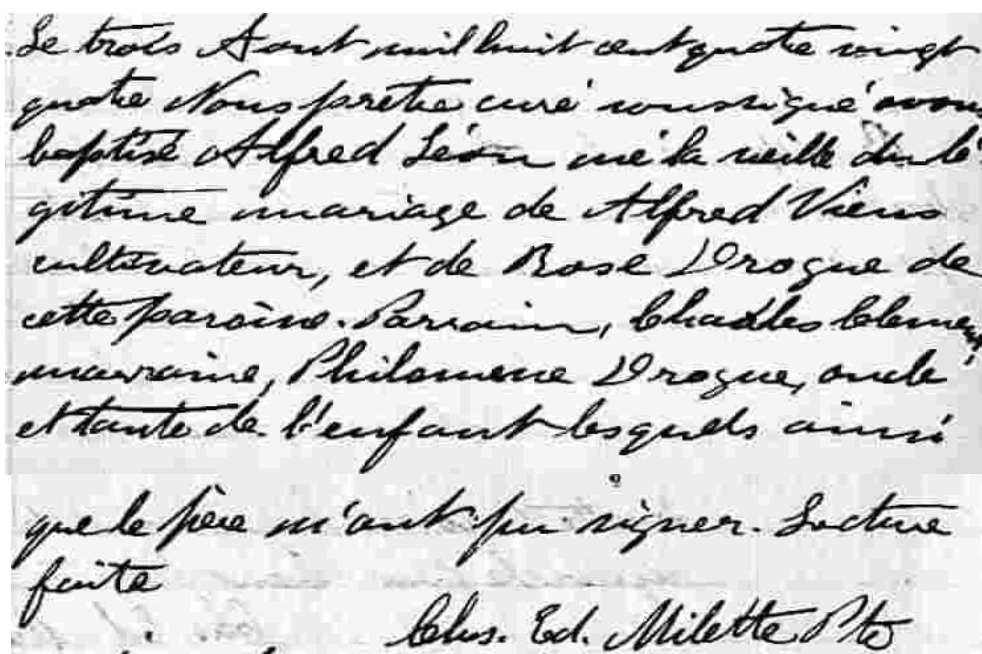 Le trois Aout mil huit cent quatre vingt
quatre Nous prêtre curé soussigné avons
baptisé Alfred Léon né la veille du lé
gitime mariage de Alfred Viens
cultivateur, et de Rose Drogue de
cette paroisse. Parrain, Charles Clement
marraine, Philomene Drogue, oncle
et tante de l'enfant lesquels ainsi
que le père n'ont pu signer. Lecture
faite
Chs. Ed. Milette Ptre